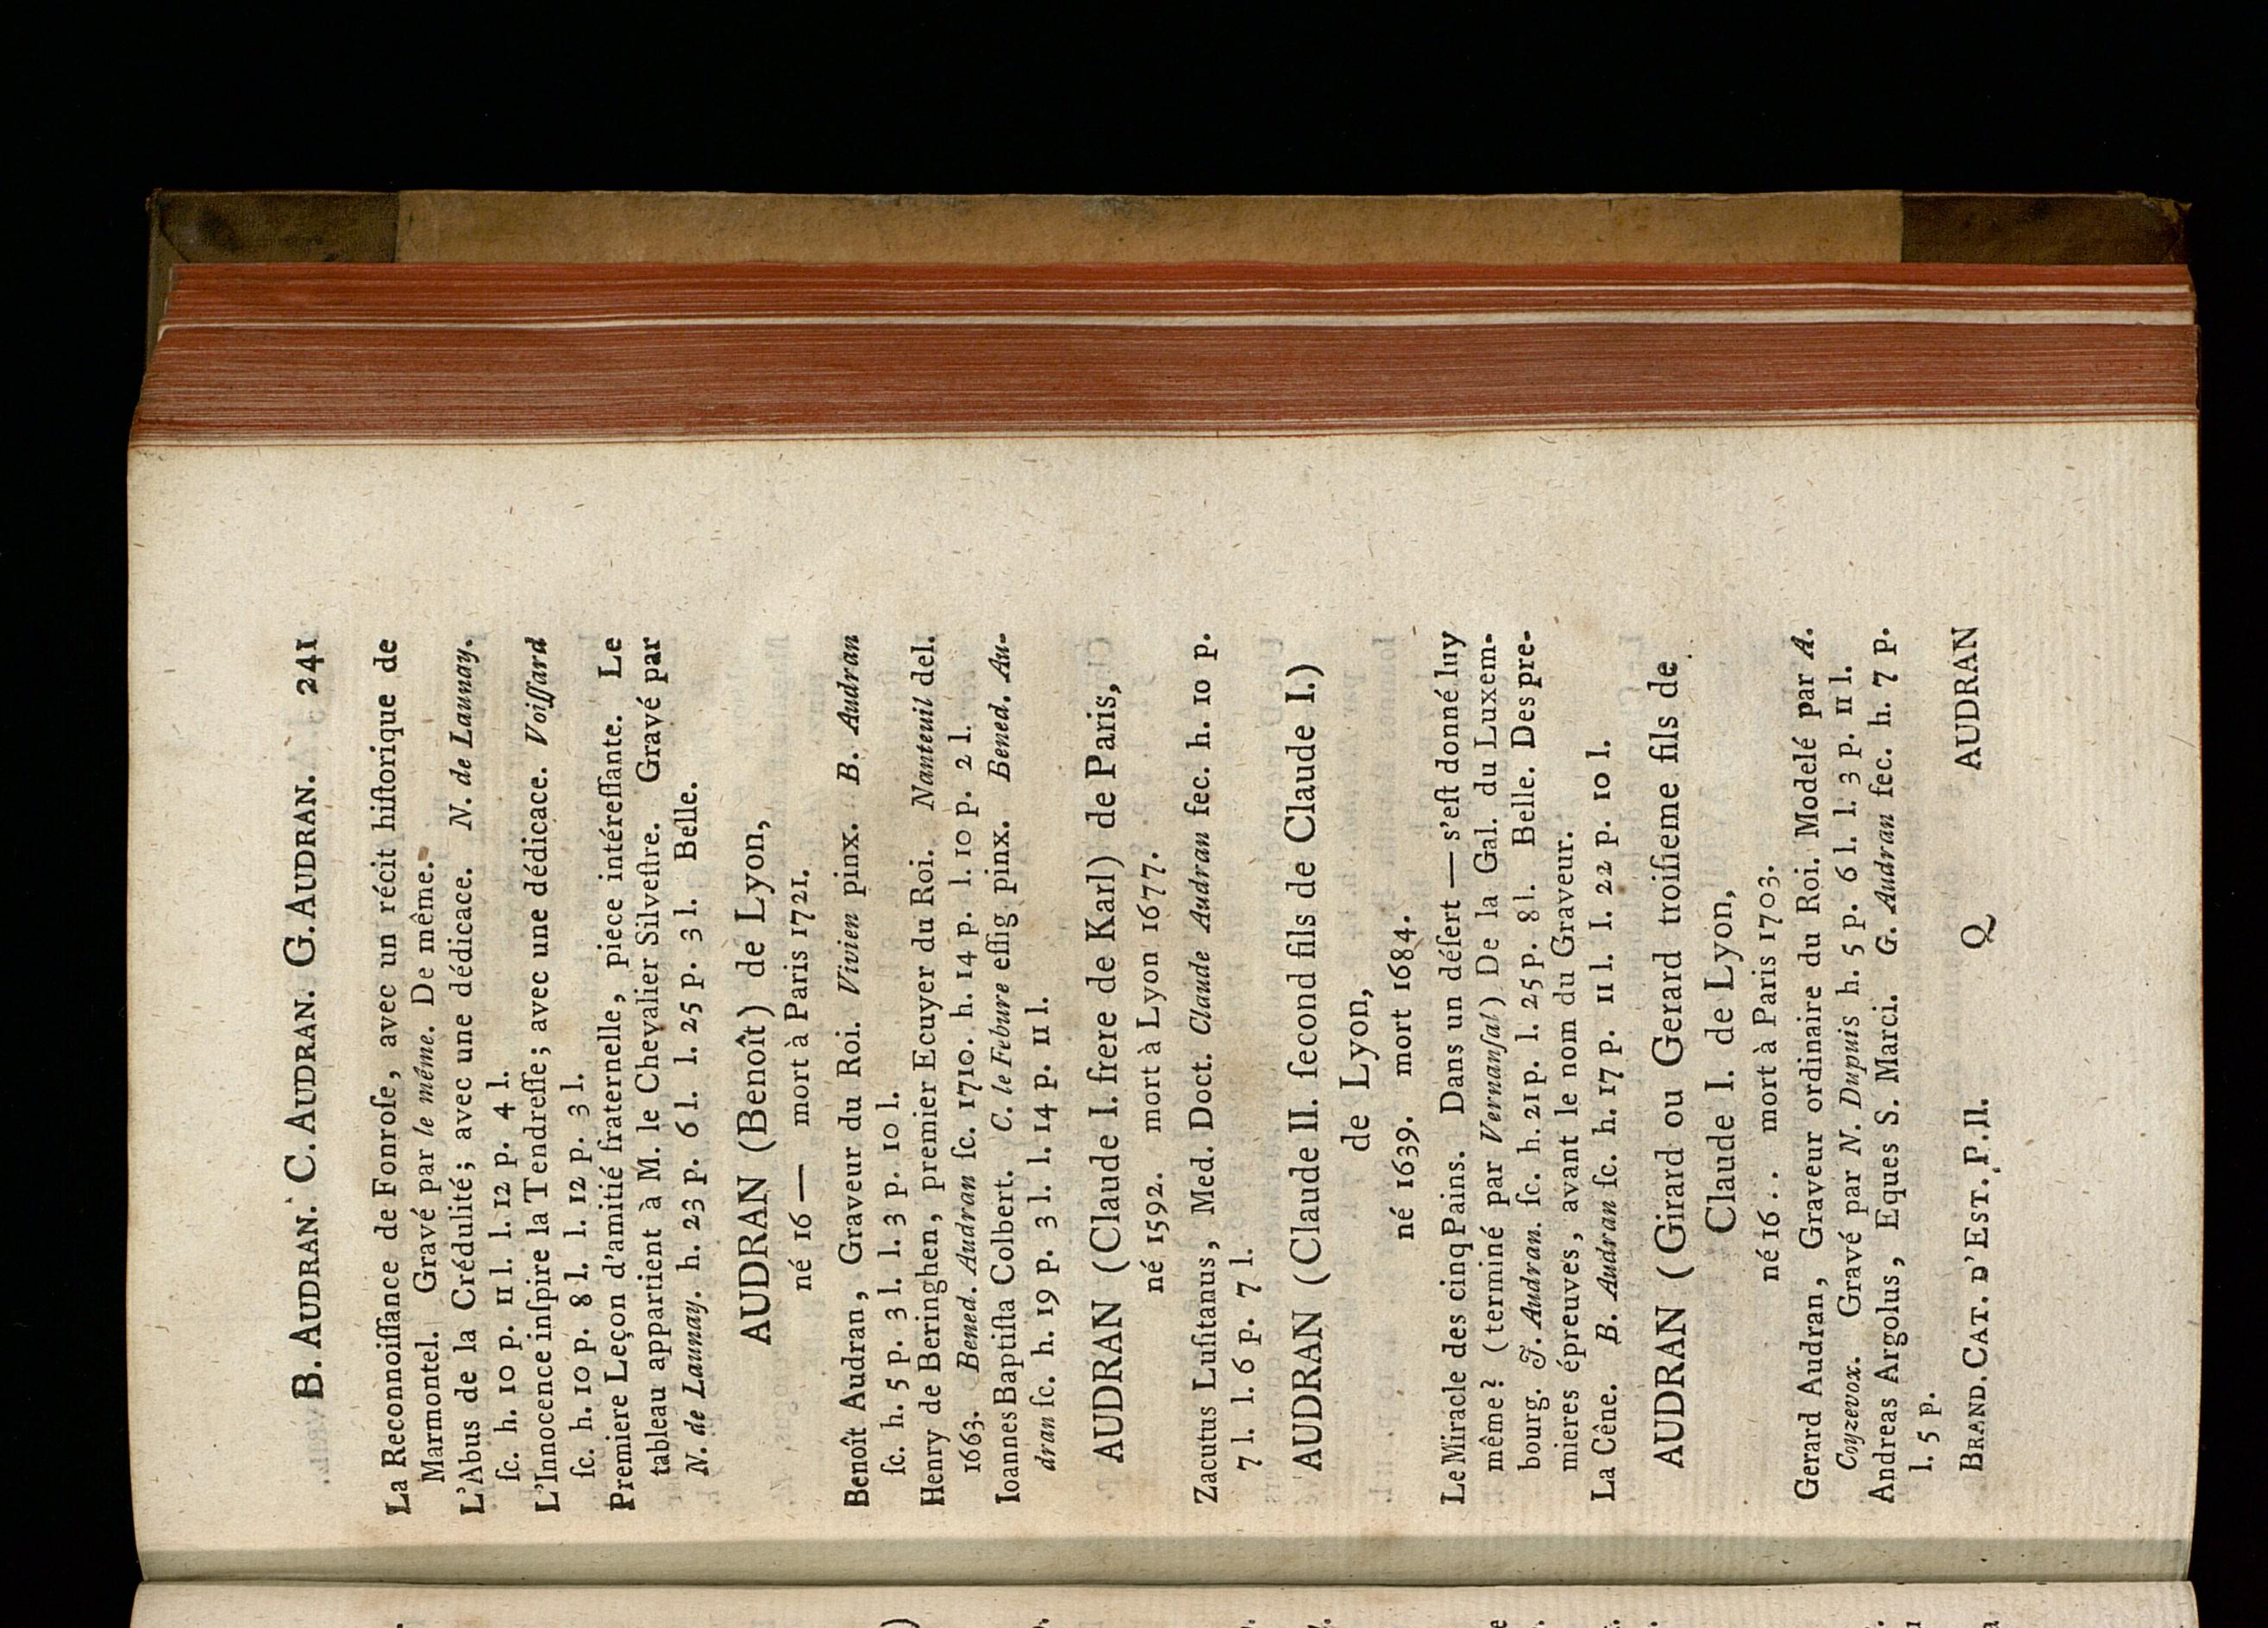 B. AUDRAN. C. AUDRAN. G. AUDRAN. 241
La Reconnoiſſance de Fonroſe, avec un récit hiſtorique de
Marmontel. Gravé par le même. De même.
L'Abus de la Crédulité; avec une dédicace. N. de Launay.
ſc. h. 10 p. 11 l. l. 12 p. 4 l.
L'Innocence inſpire la Tendreſſe; avec une dédicace. Voiſſard
ſc. h. 10 p. 8 l. l. 12 p. 3 l.
Premiere Leçon d'amitié fraternelle, piece intéreſſante. Le
tableau appartient à M. le Chevalier Silveſtre. Gravé par
N. de Launay. h. 23 p. 6 l. l. 25 p. 3 l. Belle.
AUDRAN (Benoît) de Lyon,
né 16 — mort à Paris 1721.
Benoît Audran, Graveur du Roi. Vivien pinx. B. Audran
ſc. h. 5 p. 3 l. l. 3 p. 10 l.
Henry de Beringhen, premier Ecuyer du Roi. Nanteuil del.
1663. Bened. Audran ſc. 1710. h. 14 p. l. 10 p. 2 l.
Ioannes Baptiſta Colbert. C. le Febure effig pinx. Bened. Au-
dran ſc. h. 19 p. 3 l. l. 14 p. 11 l.
AUDRAN (Claude I. frere de Karl) de Paris,
né 1592. mort à Lyon 1677.
Zacutus Luſitanus, Med. Doct. Claude Audran fec. h. 10 p.
7 l. l. 6 p. 7 l.
AUDRAN (Claude II. ſecond fils de Claude I.)
de Lyon,
né 1639. mort 1684.
Le Miracle des cinq Pains. Dans un déſert — s'eſt donné luy
même? (terminé par Vernanſal) De la Gal. du Luxem-
bourg. J. Audran. ſc. h. 21 p. l. 25 p. 8 l. Belle. Des pre-
mieres épreuves, avant le nom du Graveur.
La Cêne. B. Audran ſc. h. 17 p. 11 l. l. 22 p. 10 l.
AUDRAN (Girard ou Gerard troiſieme fils de
Claude I. de Lyon,
né 16.. mort à Paris 1703.
Gerard Audran, Graveur ordinaire du Roi. Modelé par A.
Coyzevox. Gravé par N. Dupuis h. 5 p. 6 l. l. 3 p. 11 l.
Andreas Argolus, Eques S. Marci. G. Audran fec. h. 7 p.
l. 5 p.
BRAND. CAT. D'EST. P. II. Q AUDRAN